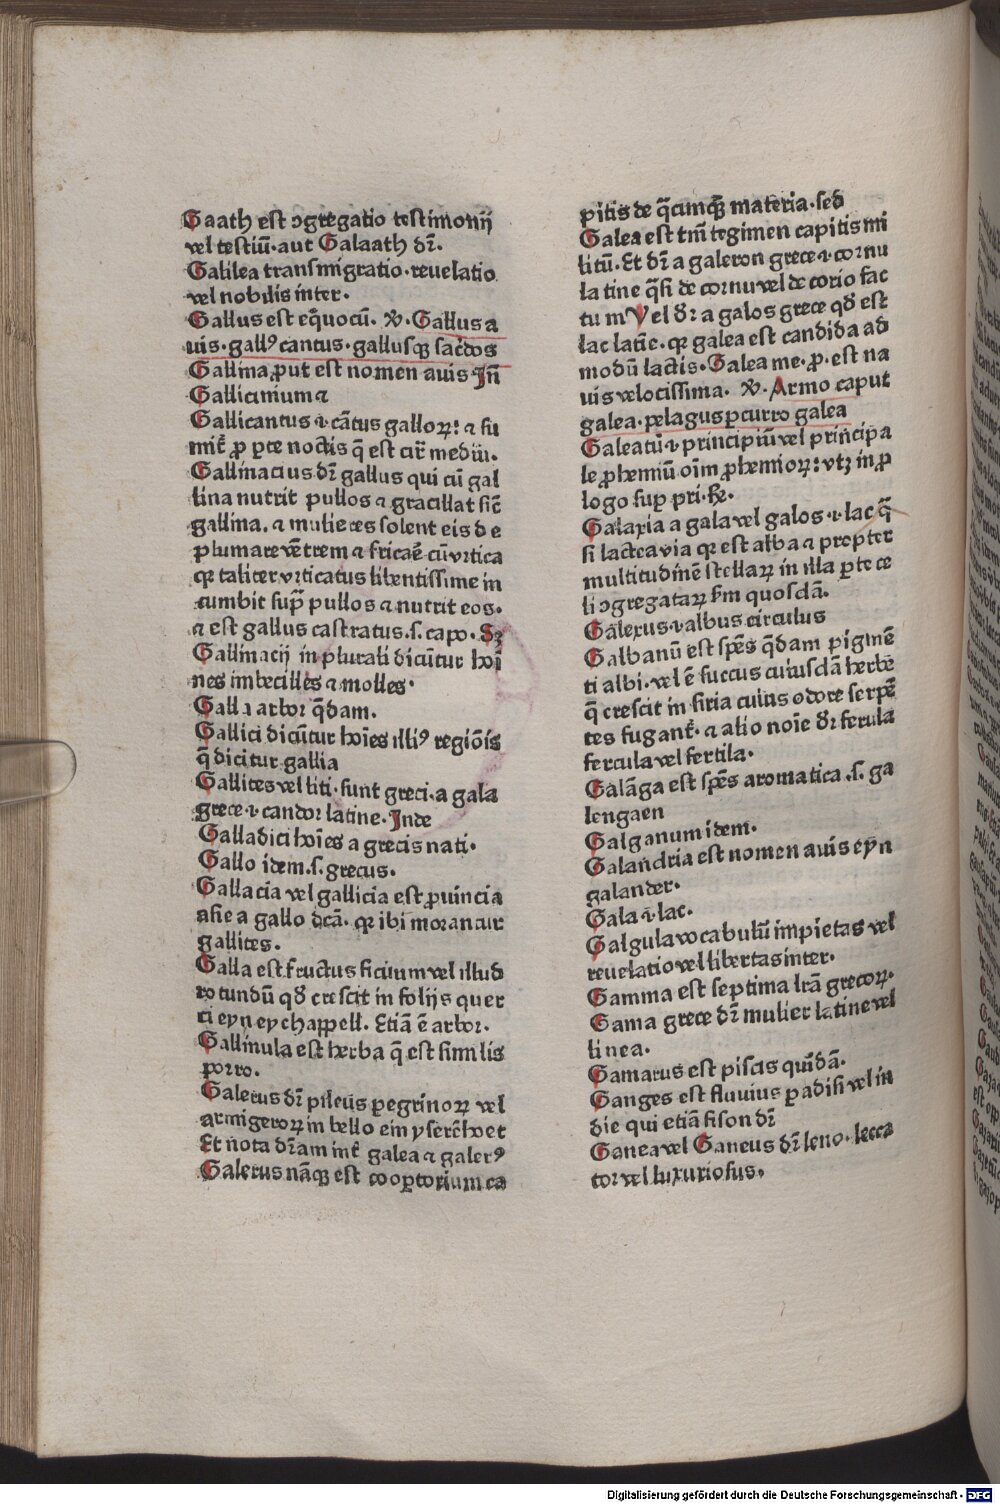 Gaath est ↄgregatio testimonij
vel testiū·aut Galaath dr̄.
Galilea transmigratio·reuelatio
vel nobilis inter·
Gallus est eq̄uocū. v̓. Gallus a
uis·gallꝰ cantus·gallusqꝫ sac̄dos
Gallina ꝓut est nomen auis Jn̄
Gallicinium ⁊
Gallicantus .i. cātus galloꝝ: ⁊ su
mit̄ ꝓ ꝑte noctis q̄ est cir̄ mediū.
Gallinacius dr̄ gallus qui cū gal
lina nutrit pullos ⁊ gracillat sic̄
gallina. ⁊ mulieres solent eis de
plumare vētrem ⁊ fricare cū vrtica
qꝛ taliter vrticatus libentissime in
cumbit sup̄ pullos ⁊ nutrit eos·
⁊ est gallus castratus.s. capo. Sꝫ
Gallinacij in plurali dicūtur hoī
nes imbecilles ⁊ molles·
Galla arbor q̄dam.
Gallici dicūtur hoīes illiꝰ regiōis
q̄ dicitur gallia
Gallites vel liti·sunt greci·a gala
grece .i. candor latine· Jnde
Galla dici hoīes a grecis nati·
Gallo idem.s. grecus.
Gallacia vel gallicia est ꝓuincia
asie a gallo dcā. qꝛ ibi morantur
gallites.
Galla est fructus ficuum vel illud
rotundū qd̄ crescit in folijs quer
ci eyn eychappell. Etiā ē arbor.
Gallinula est herba q̄ est similis
porro.
Galerus dr̄ pileus ꝑegrinoꝝ vel
armigeroꝝ in bello ein yserēhoet
Et nota dr̄am int̄ galea ⁊ galerꝰ
Galerus nāqꝫ est cooꝑtorium ca
pitis de q̄cunqꝫ materia·sed
Galea est tm̄ tegimen capitis mi
litū. Et dr̄ a galeron grece .i. cornu
latine q̄si de cornu vel de corio fac
tum Vel dr̄ a galos grece qd̄ est
lac latīe. qꝛ galea est candida ad
modū lactis. Galea me. ꝓ. est na
uis velocissima. v̓. Armo caput
galea·pelagus ꝑcurro galea
Galeatū .i. principiū vel principa
le ꝓhemiū oīm ꝓhemioꝝ: vtꝫ in ꝓ
logo sup pri·
Galaxia a gala vel galos .i. lac q̄
si lactea via qꝛ est alba ⁊ propter
multitudinē stellaꝝ in illa ꝑte ce
li ↄgregataꝝ s̄m quosdā.
Galexus .i. albus circulus
Galbanū est spēs q̄dam pigmē
ti albi·vel ē succus cuiusdā herbe
q̄ crescit in siria cuius odore serpē
tes fugant̄· ⁊ alio noīe dr̄ ferula
fercula vel fertila·
Galāga est spēs aromatica .s. ga
lengaen
Galganum idem·
Galandria est nomen auis eyn
galander·
Gala .i. lac.
Galgula vocabulū impietas vel
reuelatio vel libertas inter·
Gamma est septima lr̄a grecoꝝ.
Gama grece dr̄ mulier latine vel
linea.
Gamarus est piscis quidā·
Ganges est fluuius ꝑadisi vel in
die qui etiā fison dr̄
Ganea vel Ganeus dr̄ leno·lecca
tor vel luxuriosus.
Digitalisierung gefördert durch die Deutsche Forschungsgemeinschaft - DFG